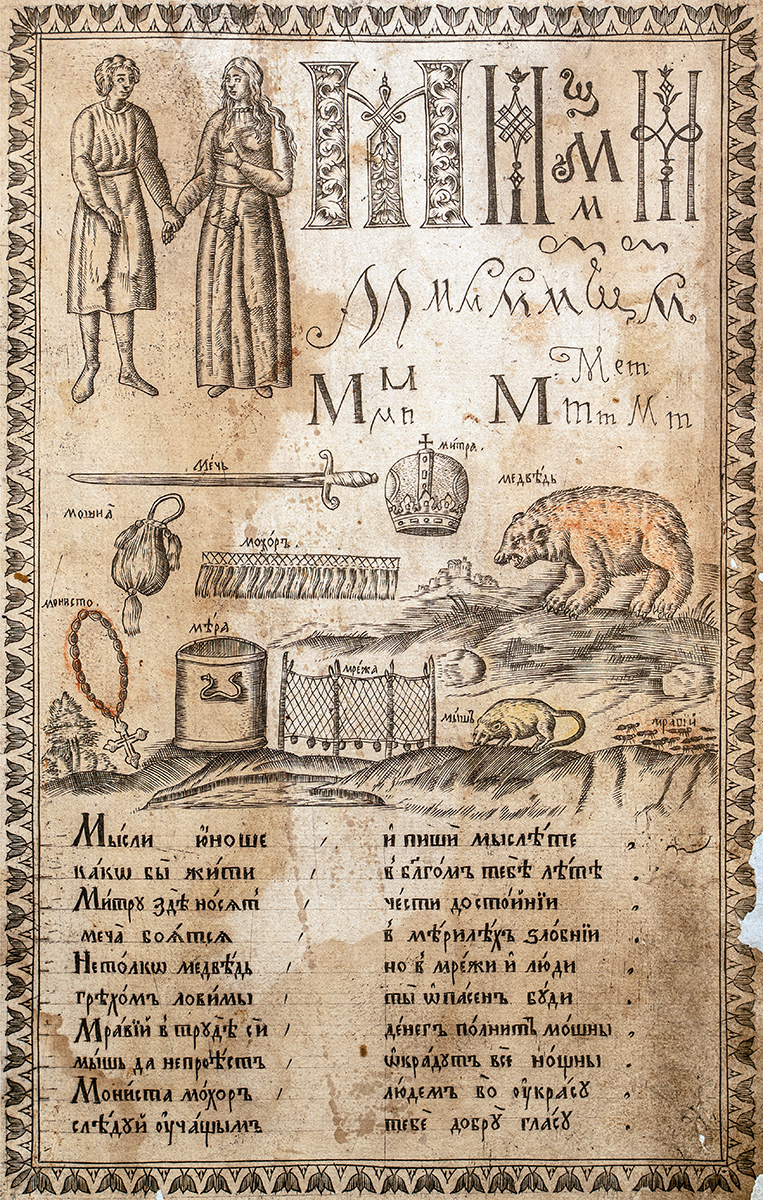 М м м
М м м м м щ м
М м м М Мет
м м М т т м М т
Мечь
митра.
медвѣдь
мошна̀
мохо́ръ.
монисто.
мѣ́ра
мре́жа
мы́шъ
мра́вїй
Мы́сли ю҆́ноше , и҆ пишѝ мыслѣ́те ,
ка́кѡ бы̀ жи́ти , в̾ бл҃го́мъ тебѣ̀ лѣ́тѣ .
Ми́тру здѣ̀ но́сятъ , че́сти досто́йнїи ,
меча̀ боя́тся в̾ мѣ́рилѣхъ ѕло́бнїи .
Не то́лкѡ медвѣ́дь , но в̾ мре́жи и҆ лю́ди ,
грѣхо́мъ лови́мы , ты̀ ѡ҆па́сенъ бу́ди .
Мра́вїй в̾ трудѣ̀ сѝ , де́негъ по́лнитъ мо́шны ,
мы́шь да не проѣ́стъ , ѡ҆кра́дутъ всѐ но́щны .
Мони́ста мо́хоръ , лю́демъ бо ᲂу҆кра́су ,
слѣ́дуй ᲂу҆ча́щымъ тебѐ до́бру гла́су .